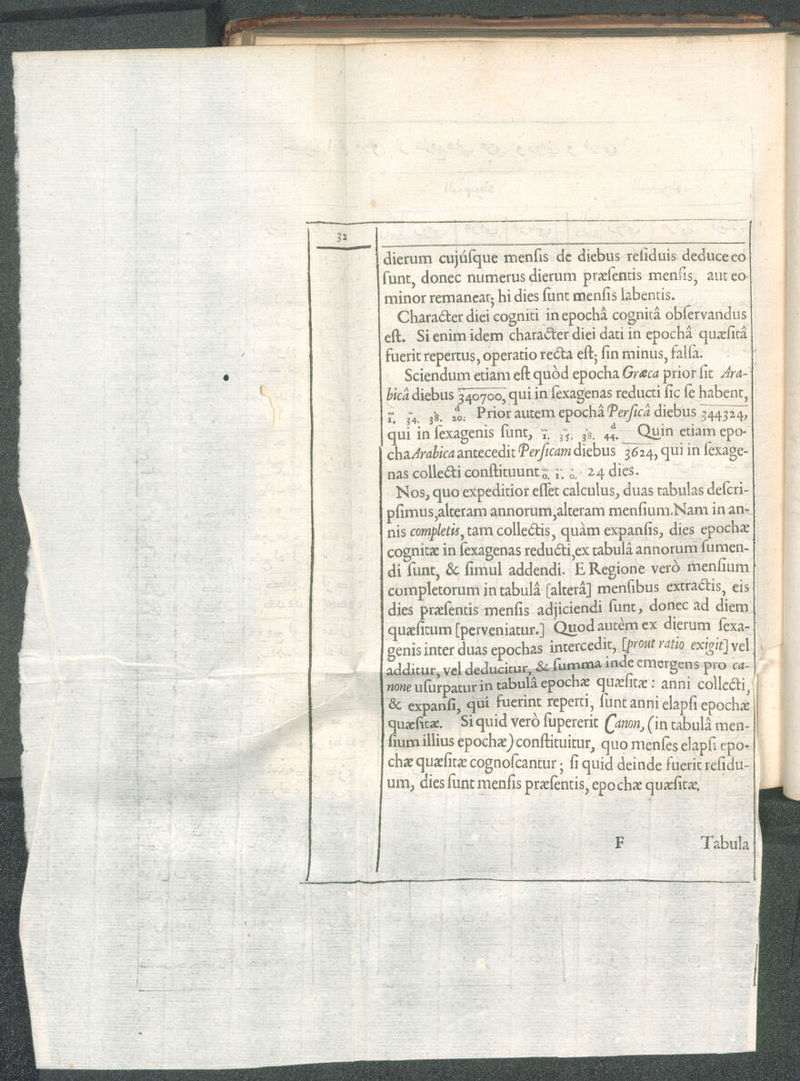 32
dierum cujúſque menſis de diebus reſiduis deduceeo
ſunt, donec numerus dierum præſentis menſis, aut eo
minor remaneat; hi dies ſunt menſis labentis.
Character diei cogniti in epochâ cognitâ obſervandus
eſt. Si enim idem character diei dati in epochâ quæſitâ
fuerit repertus, operatio recta eſt; ſin minus, falſa.
Sciendum etiam eſt quòd epocha Græca prior ſit Ara-
bicâ diebus 340700, qui in ſexagenas reducti ſic ſe habent,
1. 34. 38. 20. Prior autem epochâ Perſicâ diebus 344324,
qui in ſexagenis ſunt, 1. 35. 38. 44. Quin etiam epo-
cha Arabica antecedit Perſicam diebus 3624, qui in ſexage-
nas collecti conſtituunt 0. 1. 0. 24 dies.
Nos, quo expeditior eſſet calculus, duas tabulas deſcri-
pſimus, alteram annorum, alteram menſium. Nam in an-
nis completis, tam collectis, quàm expanſis, dies epochæ
cognitæ in ſexagenas reducti, ex tabulâ annorum ſumen-
di ſunt, & ſimul addendi. E Regione verò menſium
completorum in tabulâ [alterâ] menſibus extractis, eis
dies præſentis menſis adjiciendi ſunt, donec ad diem
quæſitum [perveniatur.] Quod autèm ex dierum ſexa-
genis inter duas epochas intercedit, [prout ratio exigit] vel
additur, vel deducitur, & ſumma inde emergens pro ca-
none uſurpatur in tabulâ epochæ quæſitæ: anni collecti,
& expanſi, qui fuerint reperti, ſunt anni elapſi epochæ
quæſitæ. Si quid verò ſupererit Canon, (in tabulâ men-
ſium illius epochæ) conſtituitur, quo menſes elapſi epo-
chæ quæſitæ cognoſcantur; ſi quid deinde fuerit reſidu-
um, dies ſunt menſis præſentis, epochæ quæſitæ.
F Tabula